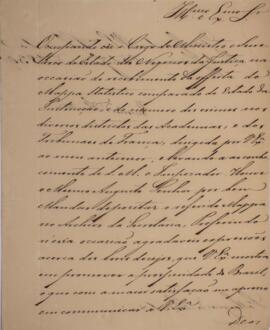 Illmo Exmo Sr.
Occupando eu o Cargo de Ministro e Secre-
tario de Estado dos Negocios da Justiça na
occasião do recebimento do officio do
Mappa Statistico comparado do Estado da
Instrucção, e do numero de crimes nos
diversos districtos das Academias, e dos
Tribunaes de França, dirigido por V. Exª
ao meu antecessor, e levando-o ao conhe-
cimento de S. M. o Imperador, Houve
o Mesmo Augusto Senhor por bem
Mandar depositar o referido Mappa
no Archivo da Secretaria. Proferindo
nessa occasião agradaveis expressões
acerca dos bons desejos, que V. Exª mostra
em promover a prosperidade do Brasil,
o que com a maior satisfação me apresso
em communicar a V. Exª
Deos